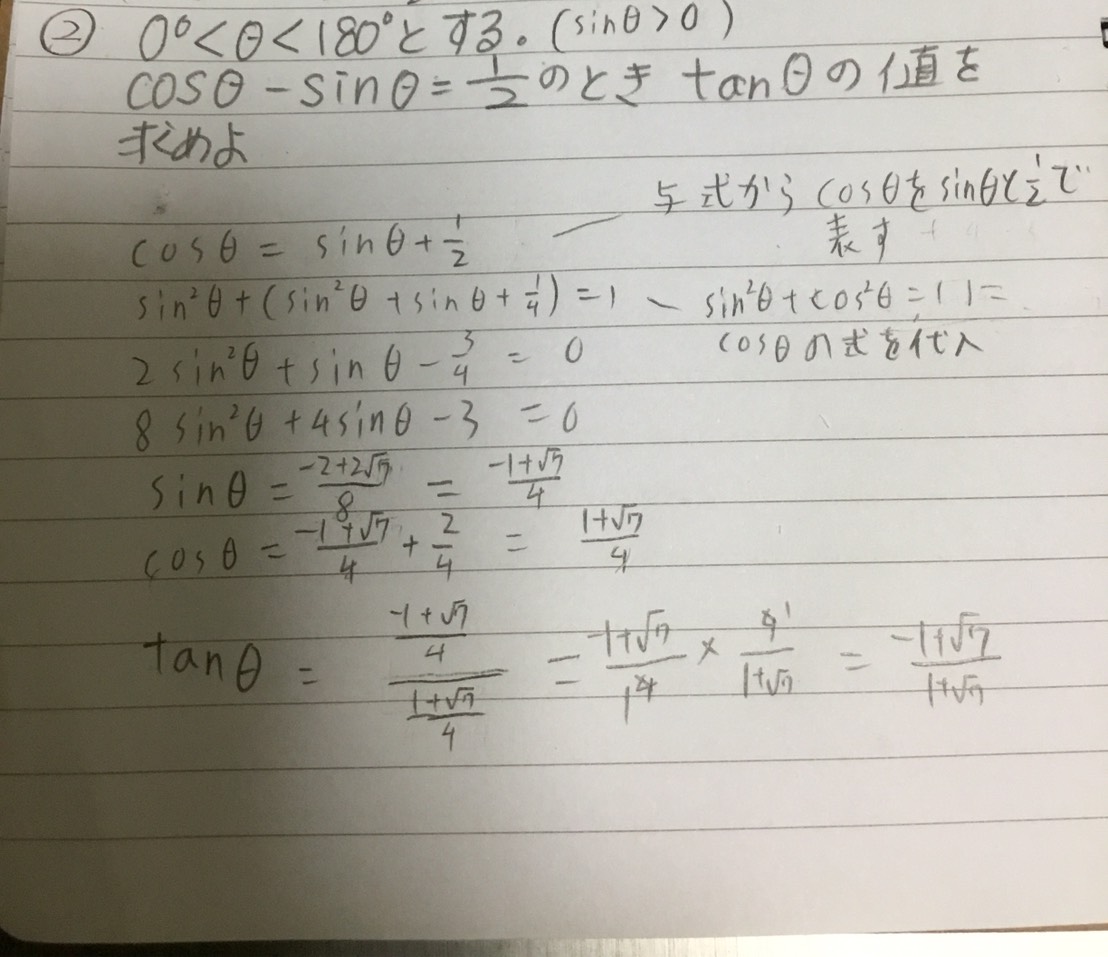 ② 0°<θ<180°とする。(sinθ>0)
cosθ-sinθ=1/2のとき tanθの値を
求めよ
与式からcosθをsinθと1/2で
表す
cosθ = sinθ+1/2
sin²θ+(sin²θ+sinθ+1/4)=1
sin²θ+cos²θ=1に
cosθの式を代入
2sin²θ+sinθ-3/4 = 0
8sin²θ+4sinθ-3 = 0
sinθ = (-2+2√7)/8 = (-1+√7)/4
cosθ = (-1+√7)/4 + 2/4 = (1+√7)/4
tanθ = ((-1+√7)/4)/((1+√7)/4) = (-1+√7)/4 × 4/(1+√7) = (-1+√7)/(1+√7)